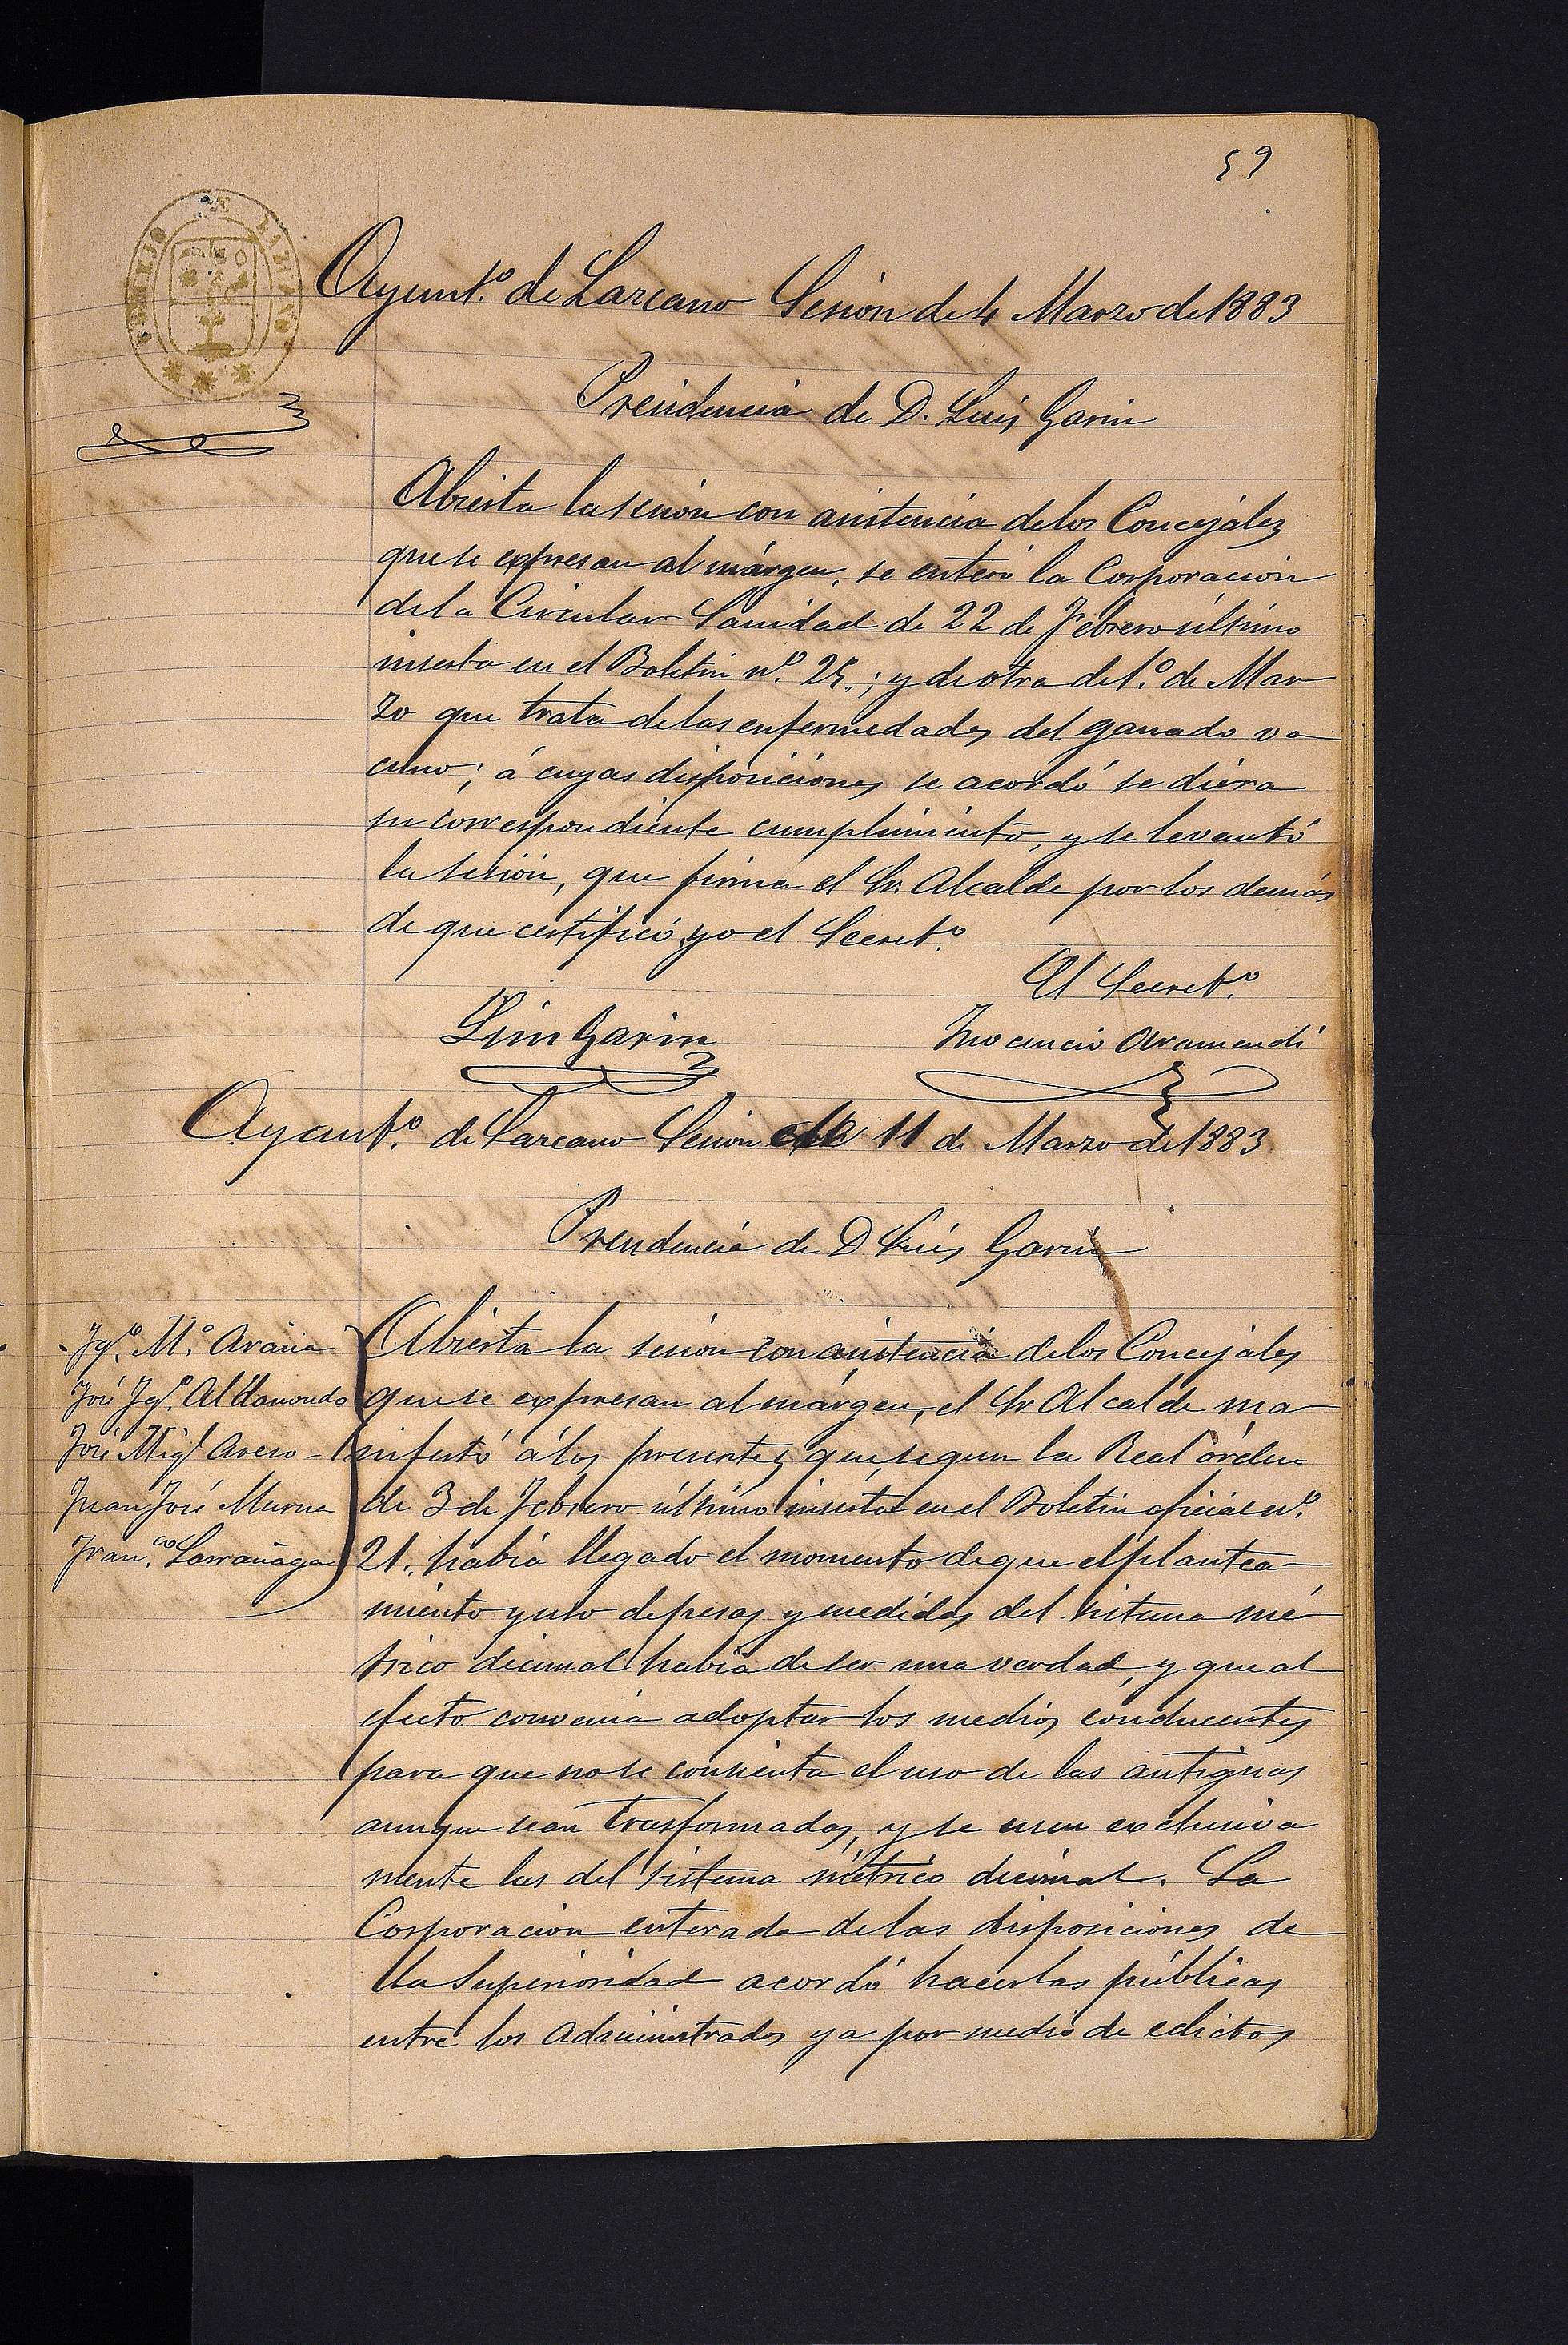 59
CONCEJO DE LAZCANO
Ayunt.º de Lazcano Sesion de 4 Marzo de 1883
Presidencia de D. Luis Garin
Abierta la sesión con asistencia de los Concejales
que se expresan al márgen, se enteró la Corporación
de la Circular Sanidad de 22 de Febrero último
inserta en el Boletin nº. 25.; y de otra de 1.º de Mar
zo que trata de las enfermedades del ganado va
cuno; á cuyas disposiciones se acordó se diera
su correspondiente cumplimiento, y se levantó
la sesión, que firma el Sr. Alcalde por los demás
de que certifico yo el Secret.º
El Secret.º
Luis Garin
Inocencio Aramendi
Ayunt.º de Lazcano Sesion de 11 de Marzo de 1883
Presidencia de D Luis Garin
Ig.º M.ª Arana
José Ig.º Aldanondo
José Mig.l
Juan José Murua
Fran.co Larrañaga
Abierta la sesión con asistencia de los Concejales
que se expresan al márgen, el Sr Alcalde ma
nifestó á los presentes que, segun la Real órden
de 3 de Febrero último inserta en el Boletin oficial nº.
21. habia llegado el momento de que el plantea-
miento y uso de pesas y medidas del sistema mé
trico decimal habia de ser una verdad, y que al
efecto convenia adoptar los medios conducentes
para que no se consienta el uso de las antiguas
aunque sean trasformadas, y se usen exclusiva
mente las del sistema métrico decimal. La
Corporacion enterada de las disposiciones de
la Superioridad acordó hacerlas públicas
entre los administrados ya por medio de edictos